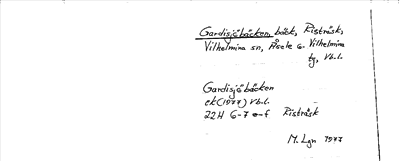 Gardisjöbäcken bäck, Risträsk,
Vilhelmina sn, Åsele o. Vilhelmina
tg, Vb.l.
Gardisjöbäcken
ek(1977) Vb.l.
22H 6-7 e-f Risträsk
M. Lgn 1977